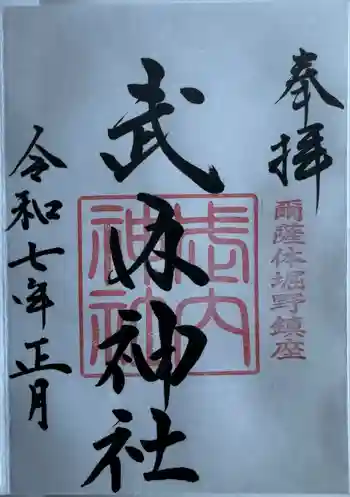 奉拝
爾薩体堀野鎮座
武内神社
武内
神社
令和七年正月